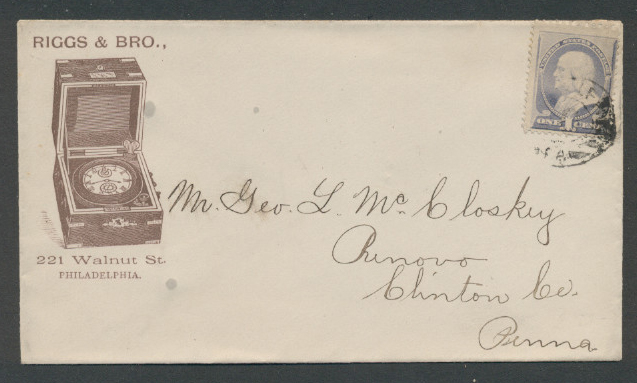 RIGGS & BRO.,
221 Walnut St.
PHILADELPHIA.
UNITED STATES POSTAGE
ONE CENT
Mr. Geo. L. McCloskey
Renovo
Clinton Co.
Penna